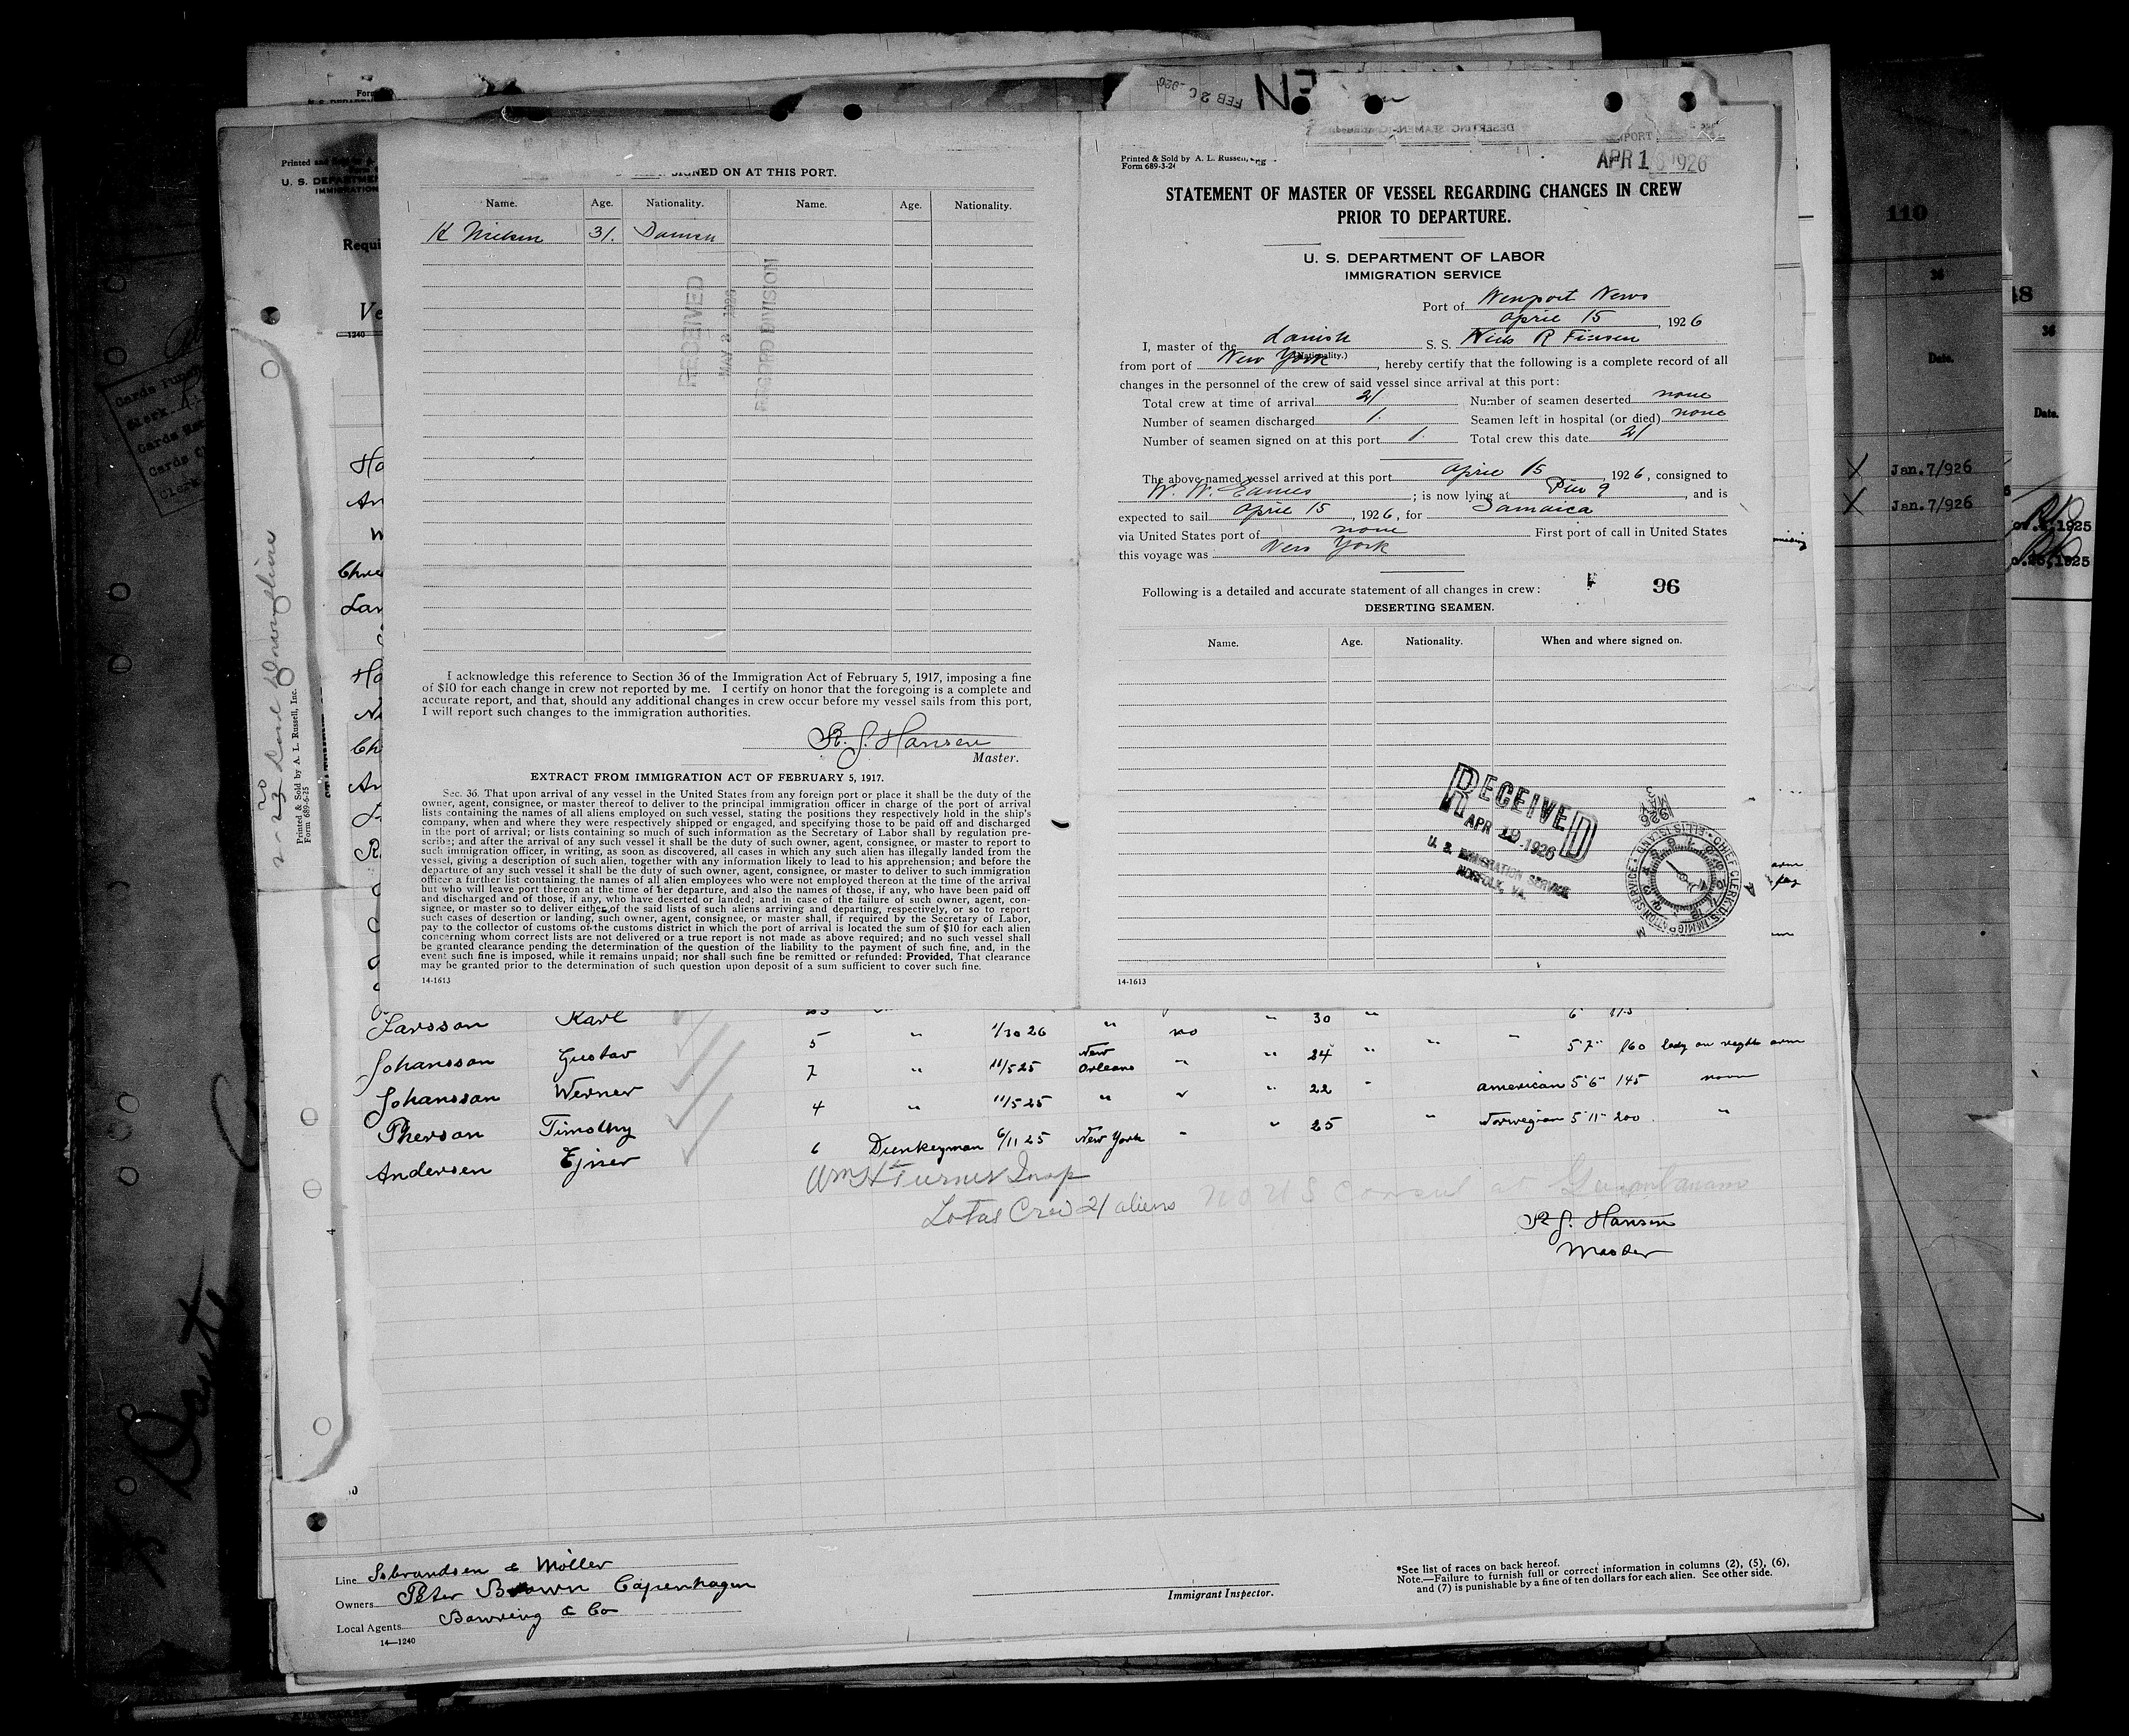 SIGNED ON AT THIS PORT.
Name. Age. Nationality. Name. Age. Nationality.
K Nielsen 31. Danish
RECEIVED
RECORD DIVISION
I acknowledge this reference to Section 36 of the Immigration Act of February 5, 1917, imposing a fine
of $10 for each change in crew not reported by me. I certify on honor that the foregoing is a complete and
accurate report, and that, should any additional changes in crew occur before my vessel sails from this port,
I will report such changes to the immigration authorities.
Hansen
Master.
EXTRACT FROM IMMIGRATION ACT OF FEBRUARY 5, 1917.
Sec. 36. That upon arrival of any vessel in the United States from any foreign port or place it shall be the duty of the
owner, agent, consignee, or master thereof to deliver to the principal immigration officer in charge of the port of arrival
lists containing the names of all aliens employed on such vessel, stating the positions they respectively hold in the ship's
company, when and where they were respectively shipped or engaged, and specifying those to be paid off and discharged
in the port of arrival; or lists containing so much of such information as the Secretary of Labor shall by regulation pre-
scribe; and after the arrival of any such vessel it shall be the duty of such owner, agent, consignee, or master to report to
such immigration officer, in writing, as soon as discovered, all cases in which any such alien has illegally landed from the
vessel, giving a description of such alien, together with any information likely to lead to his apprehension; and before the
departure of any such vessel it shall be the duty of such owner, agent, consignee, or master to deliver to such immigration
officer a further list containing the names of all alien employees who were not employed thereon at the time of the arrival
but who will leave port thereon at the time of her departure, and also the names of those, if any, who have been paid off
and discharged and of those, if any, who have deserted or landed; and in case of the failure of such owner, agent, con-
signee, or master so to deliver either of the said lists of such aliens arriving and departing, respectively, or so to report
such cases of desertion or landing, such owner, agent, consignee, or master shall, if required by the Secretary of Labor,
pay to the collector of customs of the customs district in which the port of arrival is located the sum of $10 for each alien
concerning whom correct lists are not delivered or a true report is not made as above required; and no such vessel shall
be granted clearance pending the determination of the question of the liability to the payment of such fine, and, in the
event such fine is imposed, while it remains unpaid; nor shall such fine be remitted or refunded: Provided, That clearance
may be granted prior to the determination of such question upon deposit of a sum sufficient to cover such fine.
14-1613
FEB 2
Printed & Sold by A. L. Russell,
Form 689-3-24
APR 1 1926
STATEMENT OF MASTER OF VESSEL REGARDING CHANGES IN CREW
PRIOR TO DEPARTURE.
U. S. DEPARTMENT OF LABOR
IMMIGRATION SERVICE
Port of Newport News
April 15, 1926
I, master of the danish S. S. Niels R Finsen
(Nationality.)
from port of New York, hereby certify that the following is a complete record of all
changes in the personnel of the crew of said vessel since arrival at this port:
Total crew at time of arrival 21 Number of seamen deserted none
Number of seamen discharged 1. Seamen left in hospital (or died) none
Number of seamen signed on at this port 1. Total crew this date 21
The above-named vessel arrived at this port April 15 1926, consigned to
W. W. Eames; is now lying at Pier 9, and is
expected to sail April 15, 1926, for Jamaica
via United States port of none First port of call in United States
this voyage was New York
Following is a detailed and accurate statement of all changes in crew:
96
DESERTING SEAMEN.
Name. Age. Nationality. When and where signed on.
RECEIVED
APR 19 1926
U. S. IMMIGRATION SERVICE
NORFOLK, VA.
MAY 3 1926
CHIEF CLERK U.S. IMMIGRATION SERVICE ELLIS ISLAND
14-1613
Larsson Karl 5 " 1/30 26 " no " 30 "
Johansson Gustav 7 " 11/5 25 New Orleans " " 24 " " " 5'7" 160
Johansson Werner 4 " 11/5 25 " " 22 " american 5'6" 145
Pherson Timothy 6 Dunkeyman 6/11 25 New York " " 25 " Norwegian 5'11" 200 "
Andersen Ejner
Wm H Turner Insp
Total Crew 21 aliens no U S Consul at
Hansen
Master
Line
Owners Peter Brown Copenhagen
Local Agents Bowring & Co
14—1240
Immigrant Inspector.
*See list of races on back hereof.
Note.—Failure to furnish full or correct information in columns (2), (5), (6),
and (7) is punishable by a fine of ten dollars for each alien. See other side.
Printed & Sold by A. L. Russell, Inc.
Form 689-6-25
110
36
Date.
Jan.7/926
Jan.7/926
36
Date.